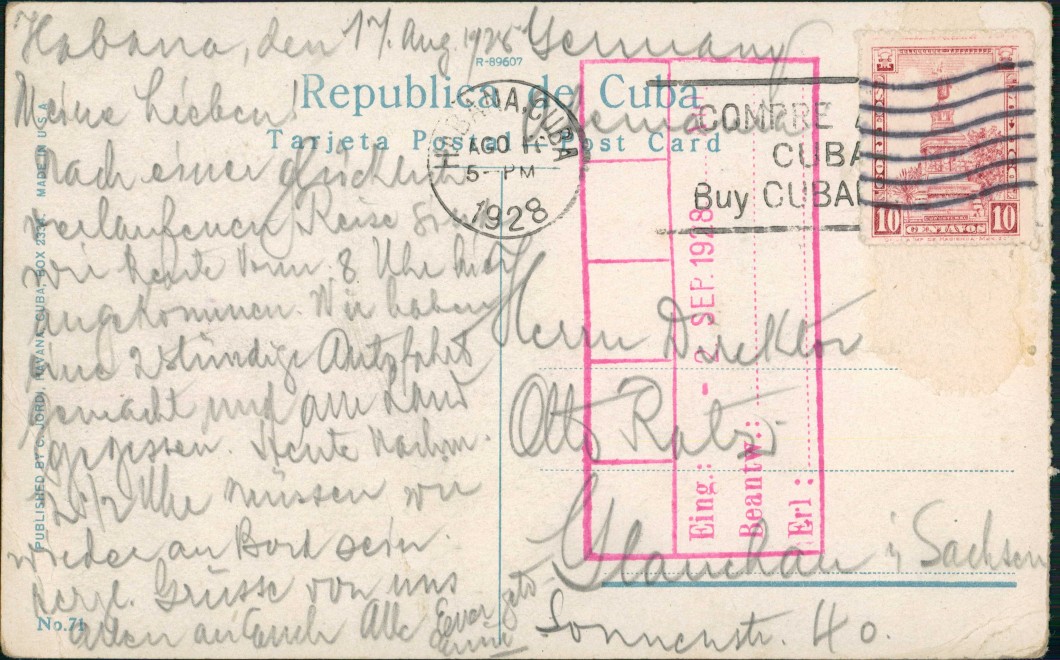 Habana, den 17. Aug. 1928
Germany
R-89607
Republica de Cuba
Tarjeta Postal - Post Card
Alemania
HABANA, CUBA
AGO 17
5 - PM
1928
COMPRE
CUBA
Buy CUBA
10 CENTAVOS 10
Meine Lieben!
Nach einer glücklich
verlaufenen Reise sind
wir heute Vorm. 8 Uhr hier
angekommen. Wir haben
eine 2stündige Autofahrt
gemacht und am Land
gegessen. Heute Nachm.
Uhr müssen wir
wieder an Bord sein.
Herzl. Grüsse von uns
Allen an Euch Alle Euer
Herrn Direktor
Otto
Glauchau i/Sachsen
Sonnenstr. 40.
- 2 SEP. 1928
Eing.:
Beantw.:
Erl:
PUBLISHED BY C. JORDI, HAVANA, CUBA, BOX MADE IN U.S.A.
No. 71